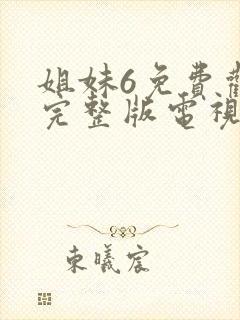 姐妹6免費觀
完整版電視
東曦宸